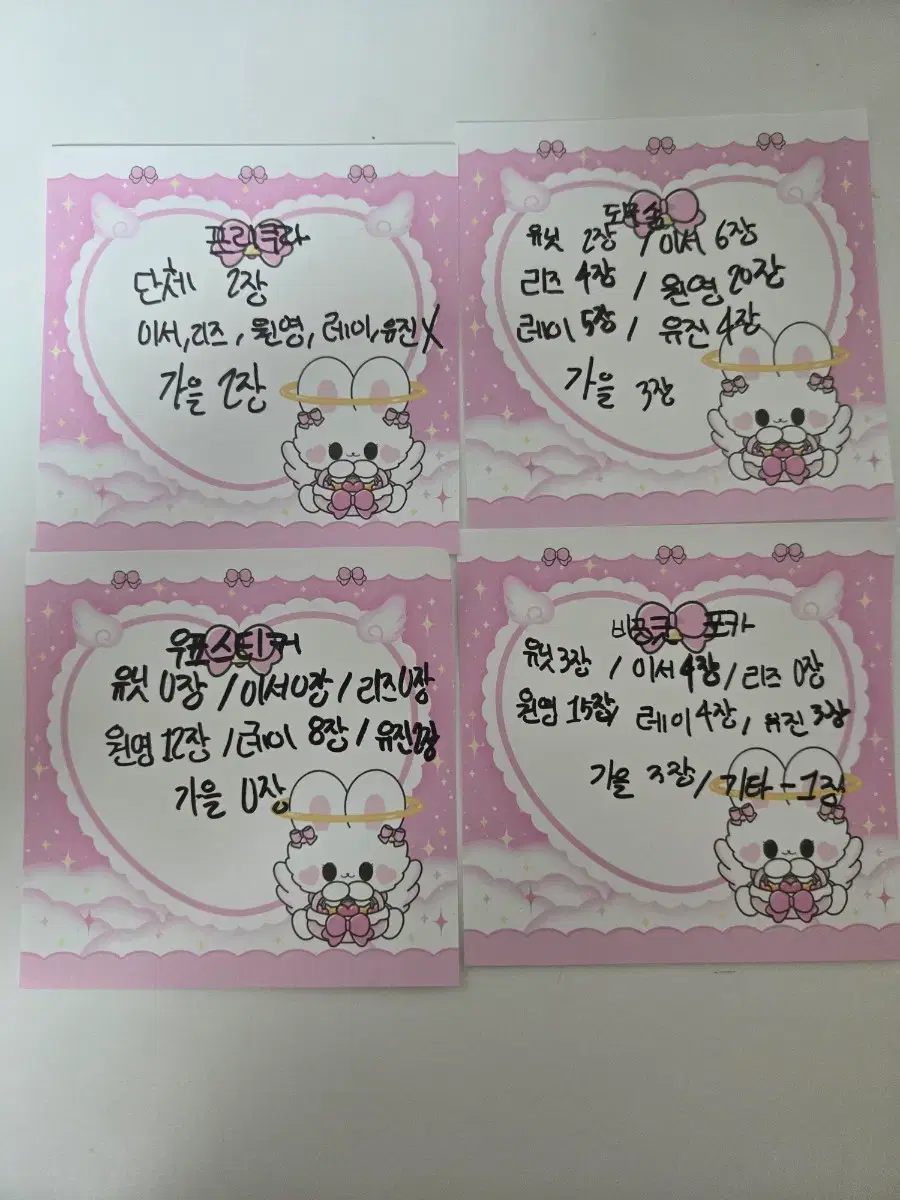 프리쿠라
단체 2장
이서, 리즈, 원영, 레이, 유진X
가을 2장
도무송
유닛 2장 / 이서 6장
리즈 4장 / 원영 20장
레이 5장 / 유진 4장
가을 3장
우표스티커
유닛 0장 / 이서 0장 / 리즈 0장
원영 12장 / 레이 8장 / 유진 2장
가을 0장
비공굿 포카
유닛 3장 / 이서 4장 / 리즈 0장
원영 15장 / 레이 4장 / 유진 3장
가을 3장 / 기타 - 1장